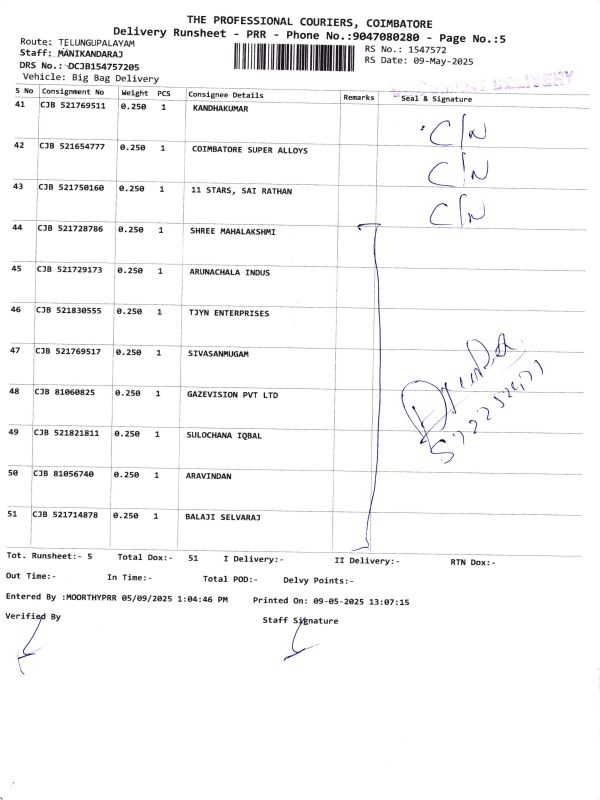 THE PROFESSIONAL COURIERS, COIMBATORE
Delivery Runsheet - PRR - Phone No.:9047080280 - Page No.:5
Route: TELUNGUPALAYAM
Staff: MANIKANDARAJ
DRS No.: DCJB154757205
Vehicle: Big Bag Delivery
RS No.: 1547572
RS Date: 09-May-2025
DELIVERY
S No Consignment No Weight PCS Consignee Details Remarks Seal & Signature
41 CJB 521769511 0.250 1 KANDHAKUMAR C/N
42 CJB 521654777 0.250 1 COIMBATORE SUPER ALLOYS C/N
43 CJB 521750160 0.250 1 11 STARS, SAI RATHAN C/N
44 CJB 521728786 0.250 1 SHREE MAHALAKSHMI
45 CJB 521729173 0.250 1 ARUNACHALA INDUS
46 CJB 521830555 0.250 1 TJYN ENTERPRISES
47 CJB 521769517 0.250 1 SIVASANMUGAM
48 CJB 81060825 0.250 1 GAZEVISION PVT LTD
49 CJB 521821811 0.250 1 SULOCHANA IQBAL
50 CJB 81056740 0.250 1 ARAVINDAN
51 CJB 521714878 0.250 1 BALAJI SELVARAJ
Tot. Runsheet:- 5 Total Dox:- 51 I Delivery:- II Delivery:- RTN Dox:-
Out Time:- In Time:- Total POD:- Delvy Points:-
Entered By :MOORTHYPRR 05/09/2025 1:04:46 PM Printed On: 09-05-2025 13:07:15
Verified By Staff Signature